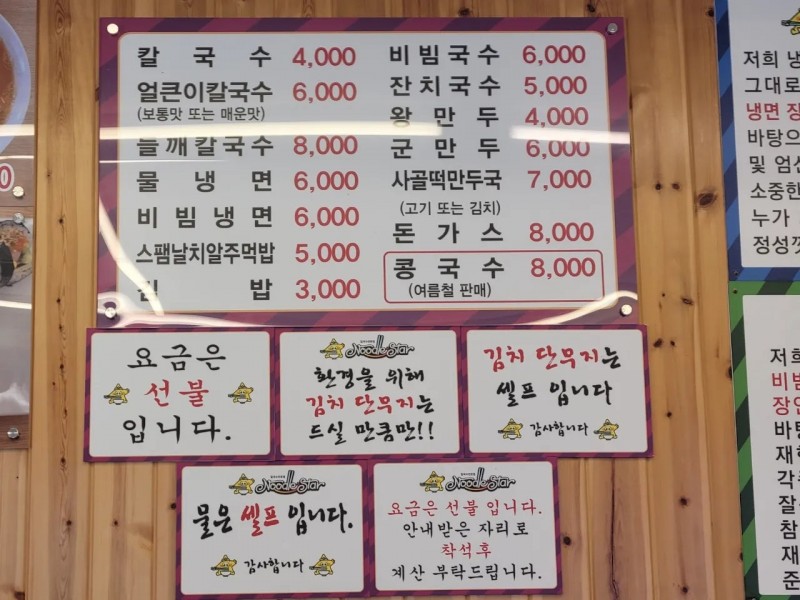 칼국수 4,000
얼큰이칼국수 6,000
(보통맛 또는 매운맛)
들깨칼국수 8,000
물냉면 6,000
비빔냉면 6,000
스팸날치알주먹밥 5,000
밥 3,000
비빔국수 6,000
잔치국수 5,000
왕만두 4,000
군만두 6,000
사골떡만두국 7,000
(고기 또는 김치)
돈가스 8,000
콩국수 8,000
(여름철 판매)
요금은
선불
입니다.
Noodle Star
환경을 위해
김치 단무지는
드실 만큼만!!
김치 단무지는
셀프 입니다
감사합니다
Noodle Star
물은 셀프 입니다.
감사합니다
Noodle Star
요금은 선불 입니다.
안내받은 자리로
착석후
계산 부탁드립니다.
저희
그대로
냉면
바탕으
및
소중한
누가
저희
바탕